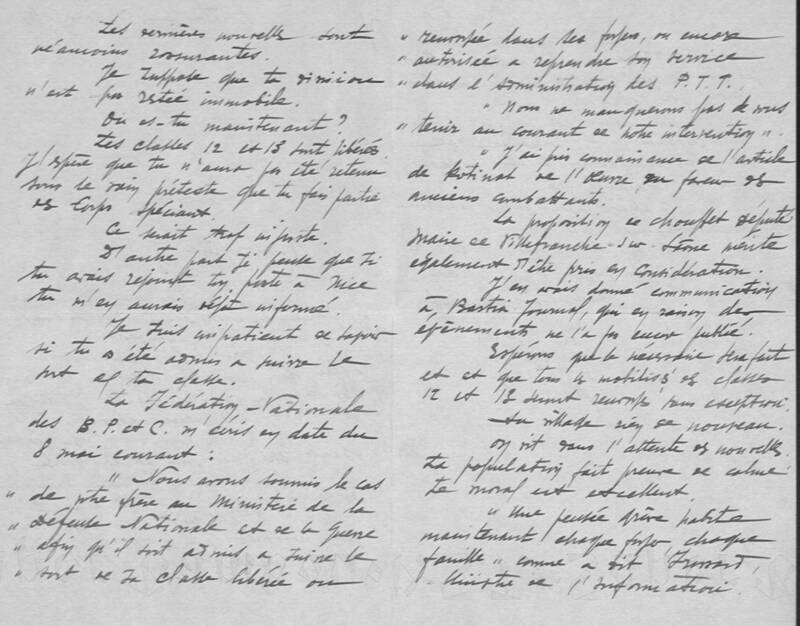 Les dernières nouvelles sont
néanmoins rassurantes.
Je suppose que ta division
n'est pas restée immobile.
Où es-tu maintenant?
Les classes 12 et 13 sont libérés.
J'espère que tu n'auras pas été retenu
sous le vain prétexte que tu fais partie
de Corps spéciaux.
Ce serait trop injuste.
D'autre part je pense que si
tu avais rejoint ton poste à Nice
tu m'en aurais déjà informé.
Je suis impatient de savoir
si tu as été admis à suivre le
sort de ta classe.
La Fédération Nationale
des B.P. et C. m'écrit en date du
8 mai courant:
" Nous avons soumis le cas
" de votre frère au Ministère de la
" Défense Nationale et de la Guerre
" afin qu'il soit admis à suivre le
" sort de sa classe libérée ou
" renvoyée dans ses foyers, ou encore
" autorisé à reprendre son service
" dans l'Administration des P.T.T.
" Nous ne manquerons pas de vous
" tenir au courant de notre intervention".
"J'ai pris connaissance de l'article
de de l'Œuvre, en faveur des
anciens combattants.
La proposition de Chouffet Député
Maire de Villefranche-sur-Saône mérite
également d'être pris en considération.
J'en avais donné communication
à Bastia Journal, qui en raison des
évènements ne l'a pas encore publié.
Espérons que le nécessaire sera fait
et et que tous les mobilisés des classes
12 et 13 seront renvoyés sans exception.
Au village rien de nouveau.
On vit dans l'attente des nouvelles.
La population fait preuve de calme.
Le moral est excellent.
"Une pensée grave habite
maintenant chaque foyer chaque
famille" comme a dit Frossard,
Ministre de l'Information.